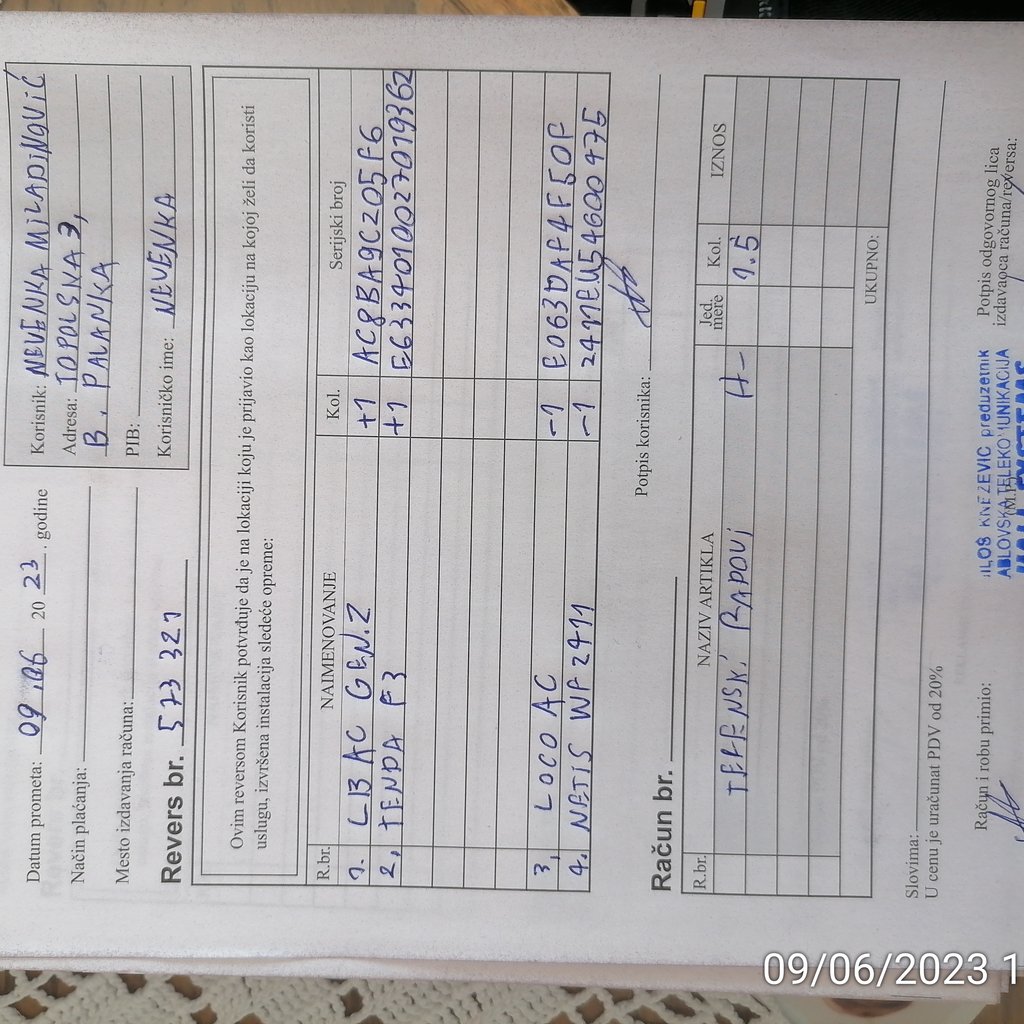 Datum prometa: 09.06 2023. godine
Način plaćanja:
Mesto izdavanja računa:
Revers br. 573 321
Korisnik: NEVENKA MILADINOVIĆ
Adresa: TOPOLSKA 3,
B. PALANKA
PIB:
Korisničko ime: NEVENKA
Ovim reversom Korisnik potvrđuje da je na lokaciji koju je prijavio kao lokaciju na kojoj želi da koristi
uslugu, izvršena instalacija sledeće opreme:
R.br. NAIMENOVANJE Kol. Serijski broj
1. LB AC GEN.2 +1 AC8BA9C205F6
2, TENDA F3 +1 E6334010027019362
3, LOCO AC -1 E063DAF4F50F
4. NETIS WF2411 -1 2411EU54600475
Potpis korisnika:
Račun br.
R.br. NAZIV ARTIKLA Jed. mere Kol. IZNOS
TERENSKI RADOVI H- 1.5
UKUPNO:
Slovima:
U cenu je uračunat PDV od 20%
Račun i robu primio:
Potpis odgovornog lica
izdavaoca računa/reversa:
(M.P.)
MILOS KNEŽEVIĆ preduzetnik
KABLOVSKA TELEKOMUNIKACIJA
09/06/2023 1